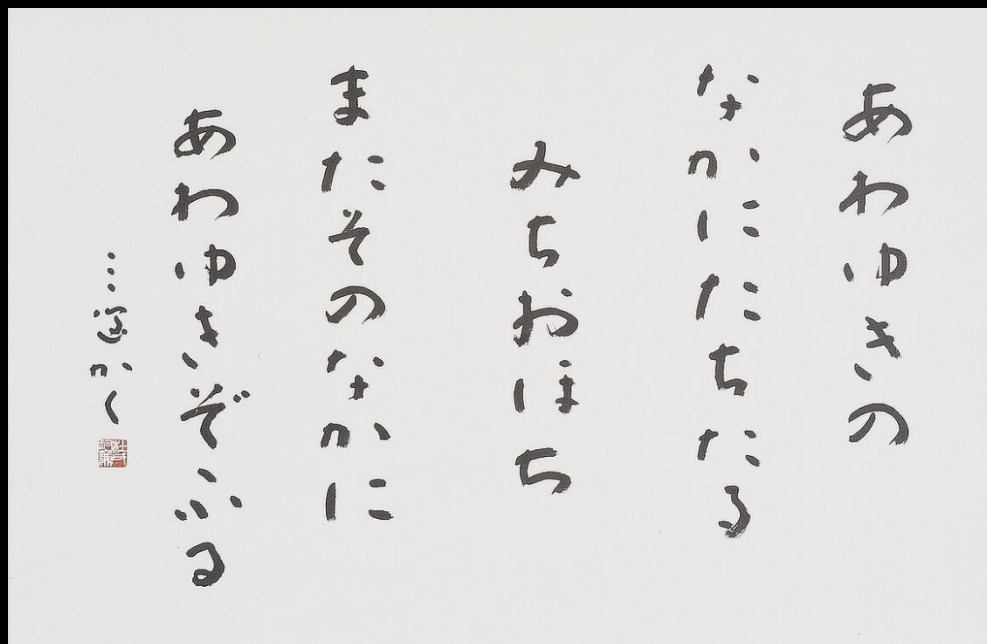 あわゆきの
なかにたちたる
みちおほち
またそのなかに
あわゆきぞふる
かく